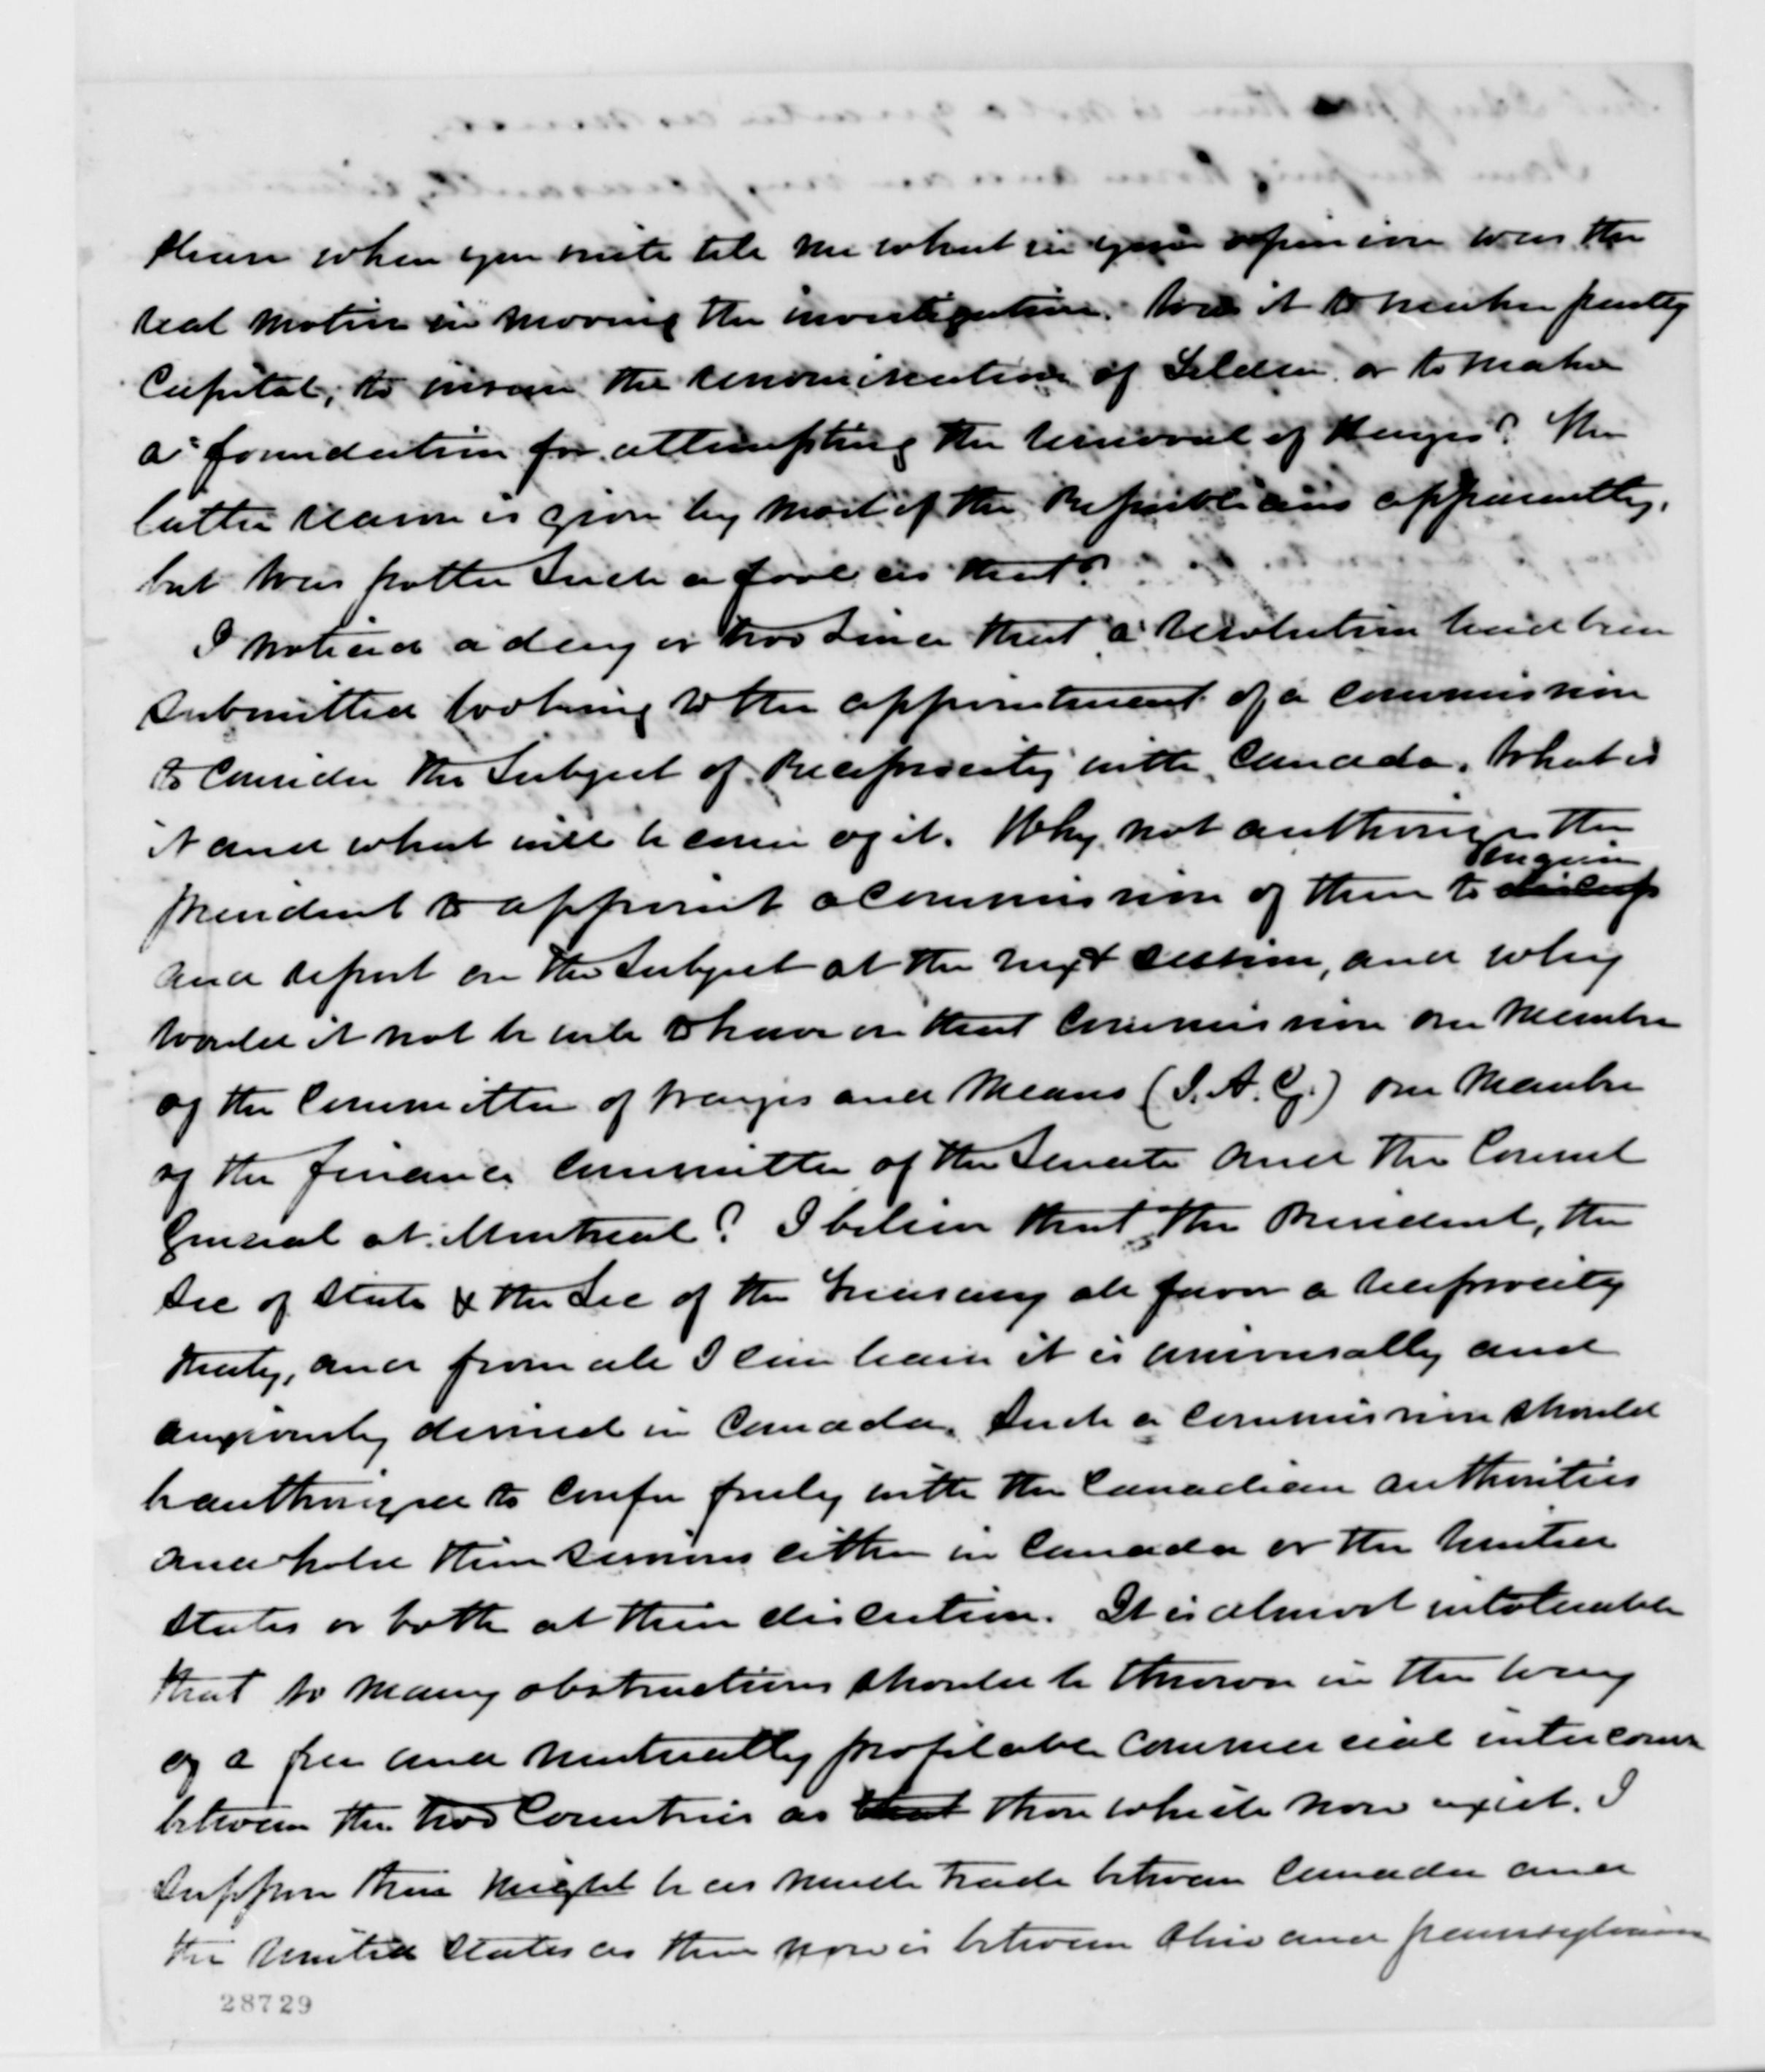 Please when you write tell me what in your opinion was the
real motive in moving the investigation. Was it to make party
Capital, to insure the renomination of Tilden, or to make
a foundation for attempting the removal of Hayes? The
latter reason is given by most of the Republicans apparently,
but was Potter Such a fool as that?
I noticed a day or two Since that a resolution had been
Submitted looking to the appointment of a Commission
to Consider the Subject of Reciprocity with Canada. What is
it and what will become of it. Why not authorize the
President to appoint a Commission of three to enquire
and report on the Subject at the next session, and why
would it not be well to have on that Commission one Member
of the Committee of Ways and Means (J. A. G.) one Member
of the Finance Committee of the Senate and the Consul
General at Montreal? I believe that the President, the
Sec of State & the Sec of the Treasury all favor a reciprocity
treaty, and from all I can learn it is universally and
anxiously desired in Canada. Such a Commission should
be authorized to Confer freely with the Canadian authorities
and hold their sessions either in Canada or the United
States or both at their discretion. It is almost intolerable
that so many obstructions should be thrown in the way
of a free and mutually profitable Commercial intercourse
between the two Countries as that those which now exist. I
Suppose there might be as much trade between Canada and
the United States as there now is between Ohio and Pennsylvania
28729